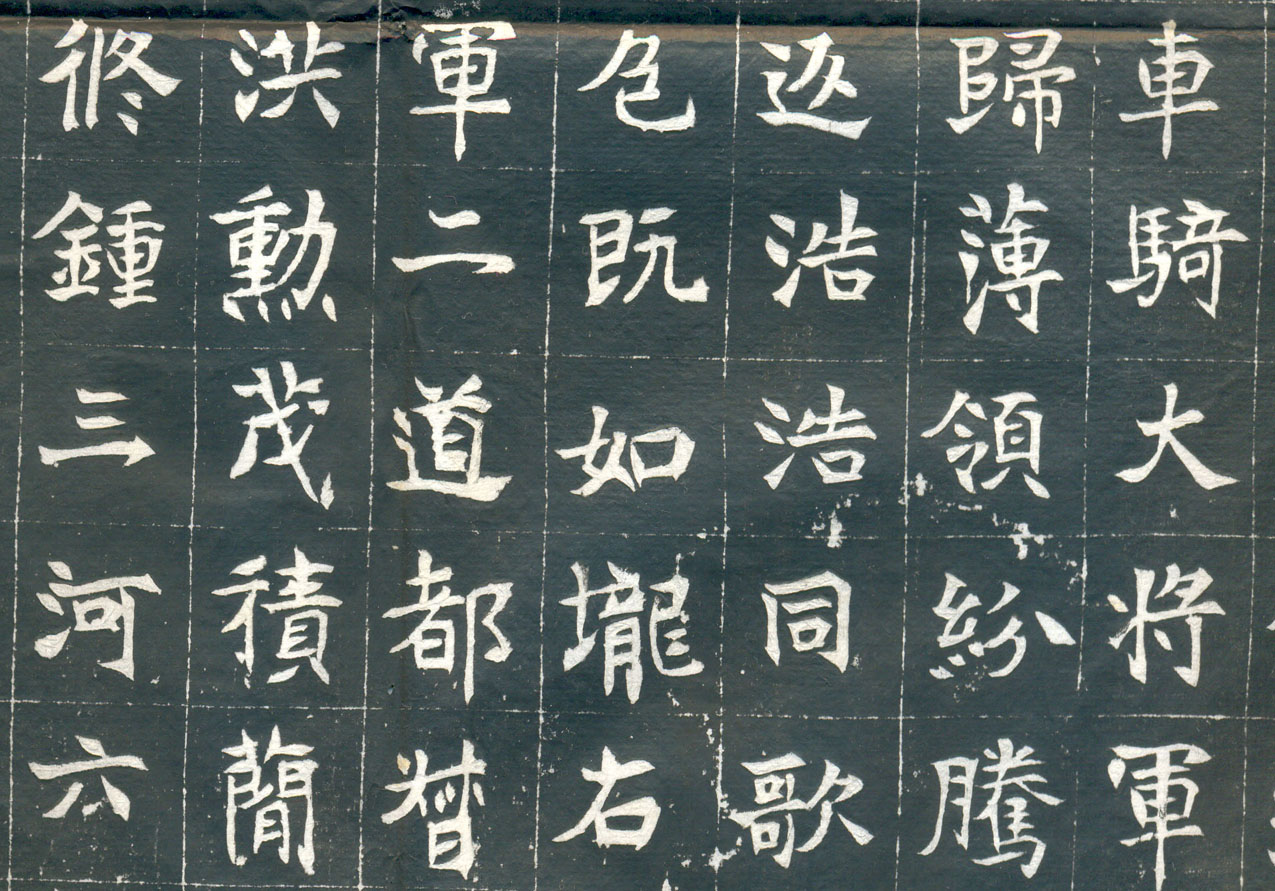 車騎大将軍
歸薄領紛騰
返浩浩同歌
色既如壠右
軍二道都督
洪勳茂積簡
修鍾三河六